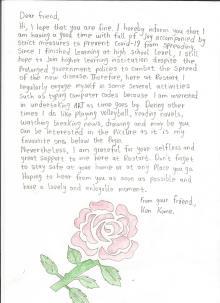 Dear friend,
Hi, I hope that you are fine, I hereby inform you that I
am having a good time with full of "Joy accompanied by
Strict measures to prevent Covid-19 from spreading.
Since I finished learning at high school level, I still
hope to join higher learning institution despite the
prolonged government policies to combat the spread
of the now disease. Therefore, here at Rostart I
regularly engage myself in some several activities
such as typing computer codes because I am interested
in undertaking as time goes by. During other
times I do like playing volleyball, reading novels,
watching breaking news, drawing and may be you
can be interested in the Picture as it is my
favourite ones below the page.
Nevertheless, I am grateful for your selfless and
great support to me here at Rostart. Don't forget
to stay safe at your home or at any place you go.
Hoping to hear from you as soon as possible and
have a lovely and enjoyable moment.
From your friend,